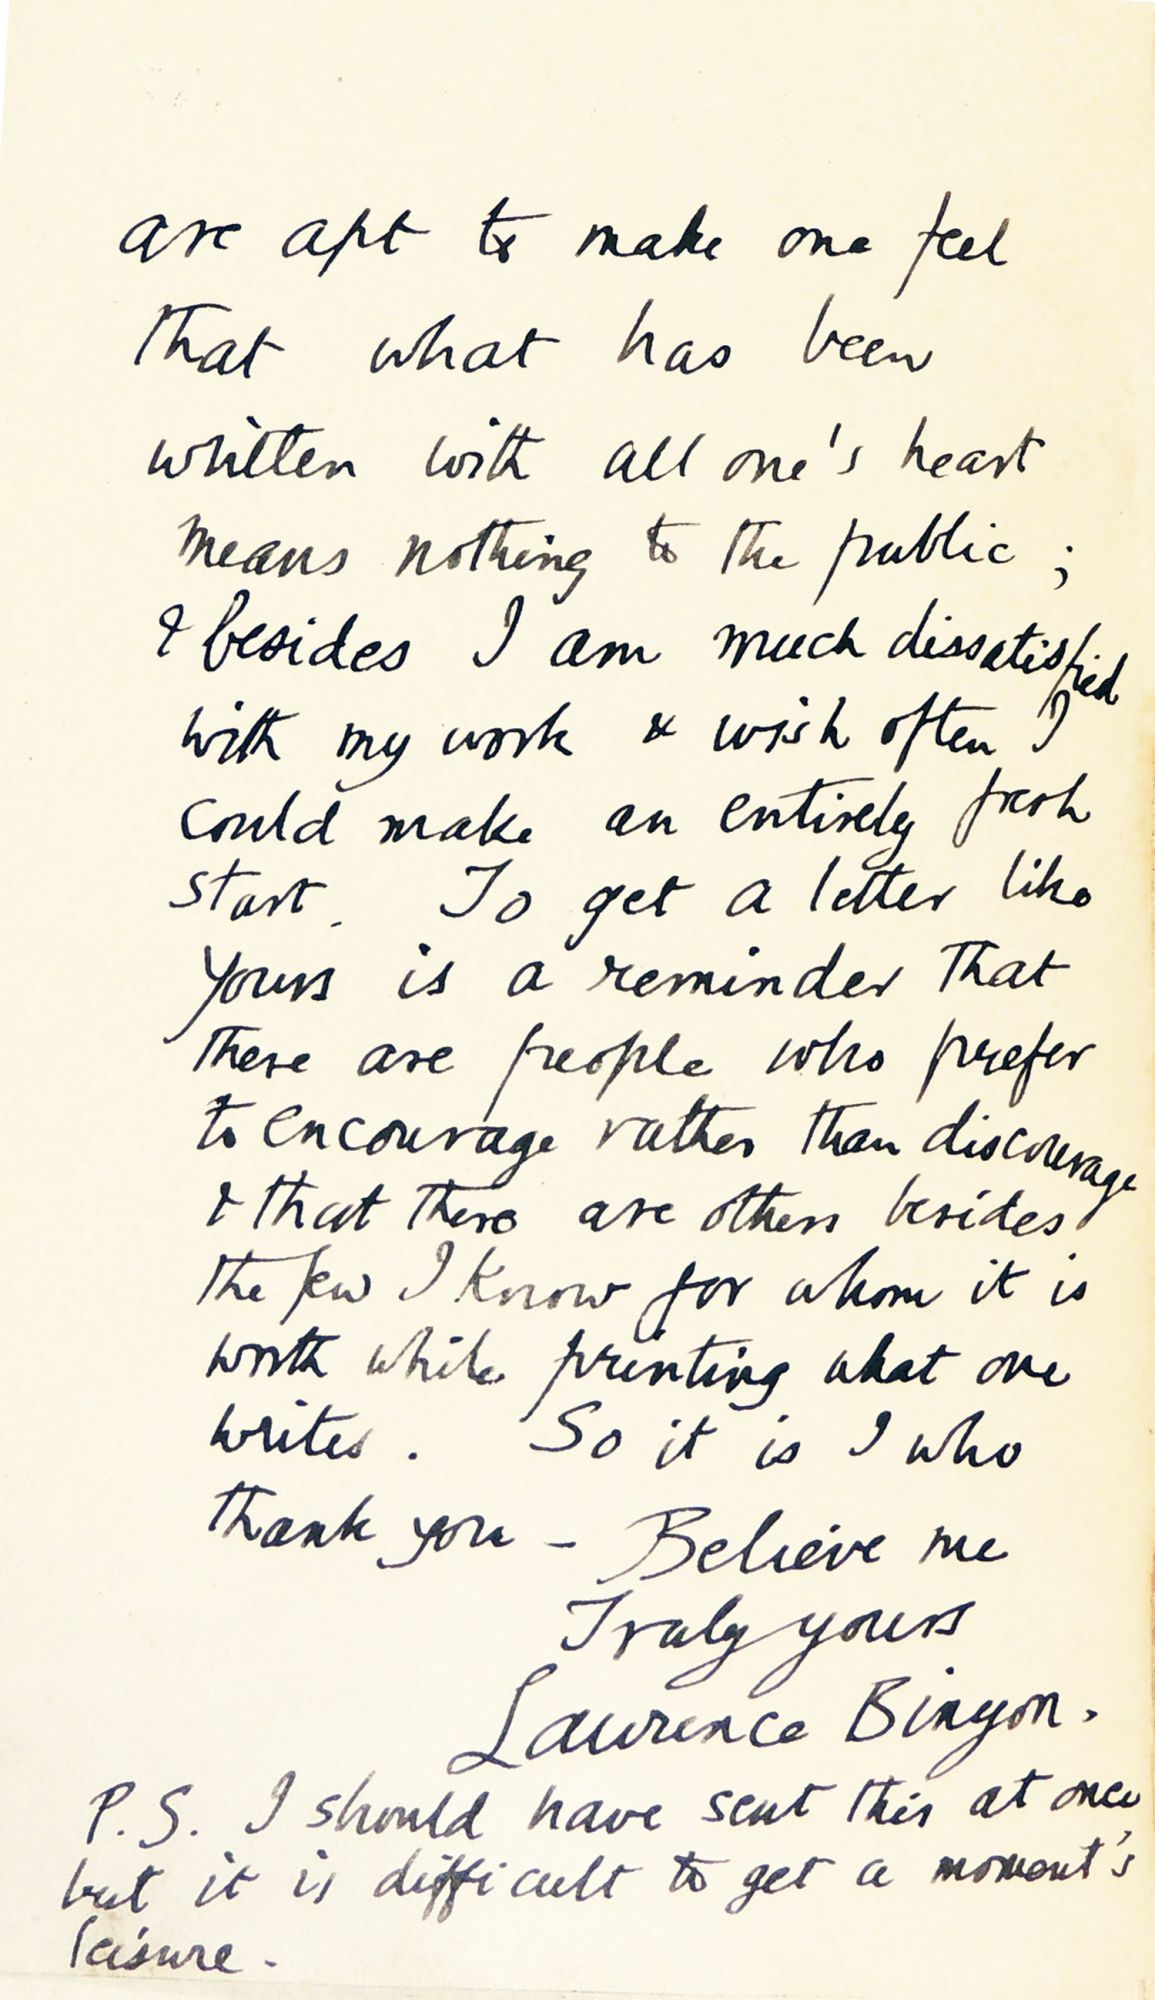 are apt to make one feel
that what has been
written with all one's heart
means nothing to the public ;
& besides I am much dissatisfied
with my work & wish often I
could make an entirely fresh
start. To get a letter like
yours is a reminder that
there are people who prefer
to encourage rather than discourage
& that there are others besides
the few I know for whom it is
worth while printing what one
writes. So it is I who
thank you – Believe me
Truly yours
Laurence Binyon.
P.S. I should have sent this at once,
but it is difficult to get a moment's
leisure.